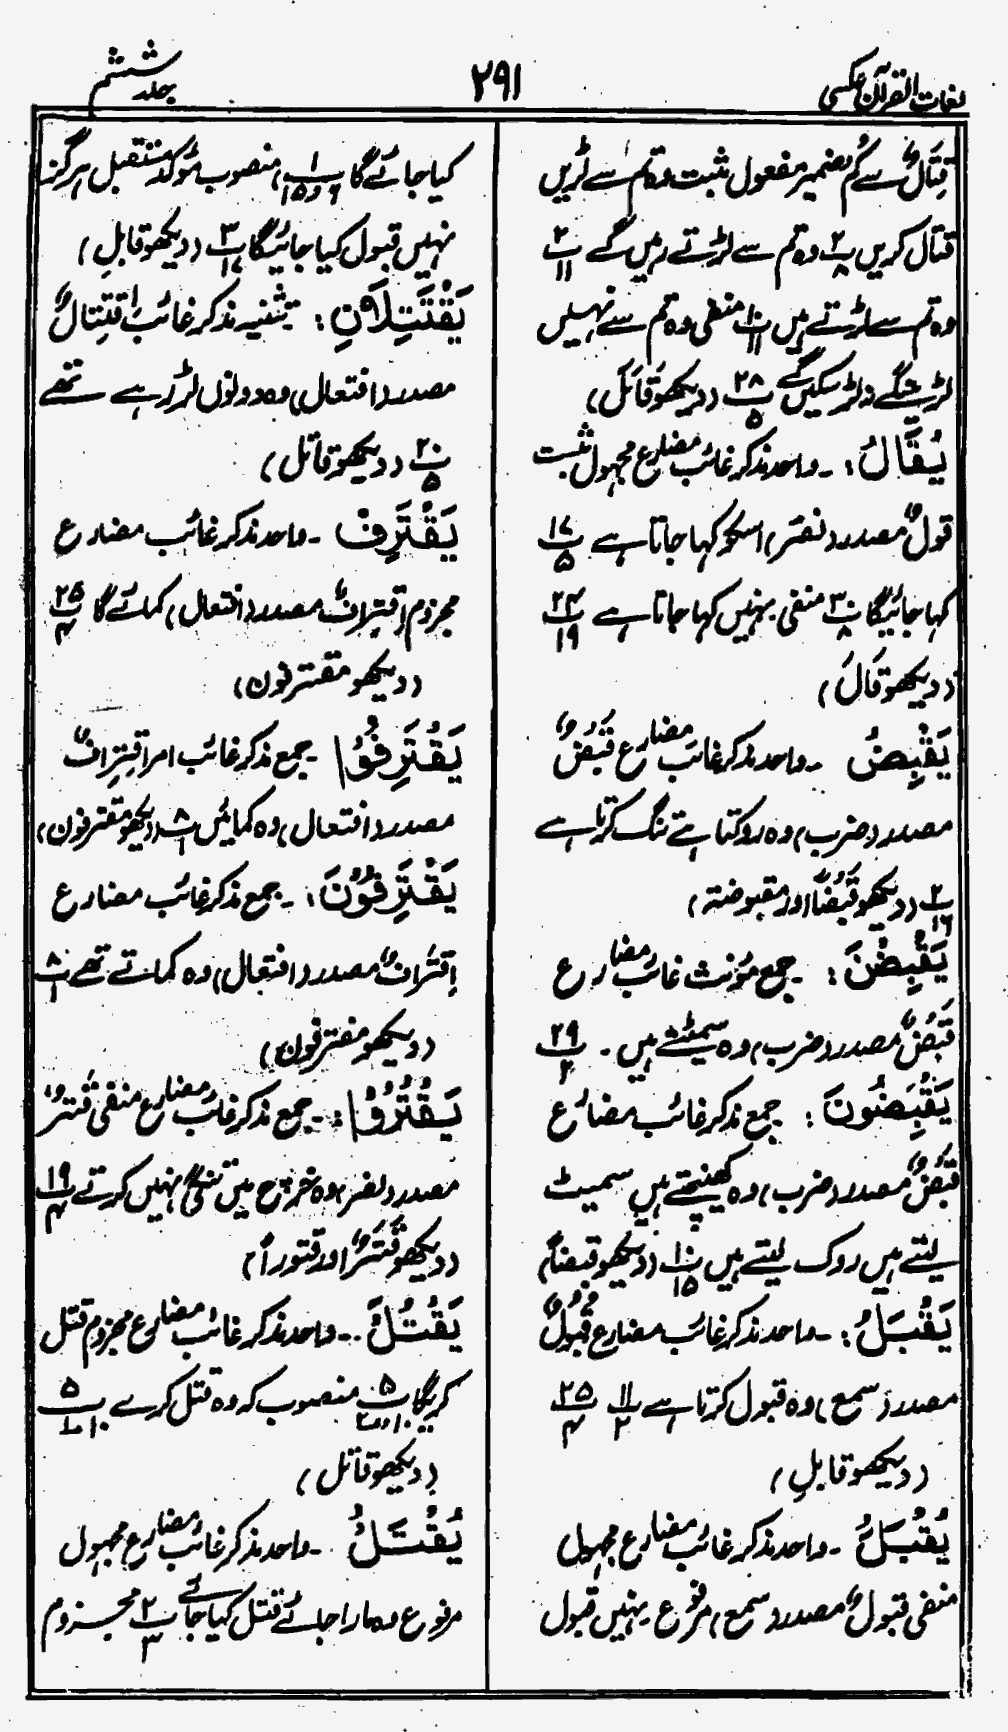 لغات القرآن عکسی
۲۹۱
جلد ششم
قِتَالٌ سے کُم ضمیر مفعول مثبت وہ تم سے لڑیں
قتال کریں پ۲/۸ وہ تم سے لڑتے رہیں گے پ۲/۱۱
وہ تم سے لڑتے ہیں پ۱۰/۱۱ منفی وہ تم سے نہیں
لڑینگے نہ لڑ سکیں گے پ۲۸/۵ (دیکھو قَاتَلَ)
يُقَالُ :۔ واحد مذکر غائب مضارع مجہول مثبت
قولٌ مصدر (نصَر) اسکو کہا جاتا ہے پ۱۷/۵
کہا جائیگا پ۳۰/۸ منفی نہیں کہا جاتا ہے پ۲۴/۱۹
(دیکھو قَالَ)
يَقْبِضُ ۔ واحد مذکر غائب مضارع قَبْضٌ
مصدر (ضرب) وہ روکتا ہے تنگ کرتا ہے
پ۲/۱۶ (دیکھو قَبْضًا اور مقبوضۃ)
يَقْبِضْنَ :۔ جمع مؤنث غائب مضارع
قَبْضٌ مصدر (ضرب) وہ سمیٹتے ہیں ۔ پ۲۹/۲
يَقْبِضُونَ : جمع مذکر غائب مضارع
قَبْضٌ مصدر (ضرب) وہ کھینچتے ہیں سمیٹ
لیتے ہیں روک لیتے ہیں پ۱۰/۱۵ (دیکھو قبضاً)
يَقْبَلُ :۔ واحد مذکر غائب مضارع قُبُولٌ
مصدر (سمع) وہ قبول کرتا ہے پ۱۱/۲ پ۲۵/۴
(دیکھو قابلِ)
يُقْبَلُ ۔ واحد مذکر غائب مضارع مجہول
منفی قبولٌ مصدر (سمع) مرفوع نہیں قبول
کیا جائے گا پ۱/۶و۱۵ منصوب مؤکد مستقبل ہرگز
نہیں قبول کیا جائیگا پ۳/۱۷ (دیکھو قابلِ)
يَقْتَتِلَانِ : تثنیہ مذکر غائب اِقْتِتَالٌ
مصدر (افتعال) وہ دونوں لڑ رہے تھے
پ۲۰/۵ (دیکھو قاتل)
يَقْتَرِفْ ۔ واحد مذکر غائب مضارع
مجزوم اِقْتِرَافٌ مصدر (افتعال) کمائے گا پ۲۵/۴
(دیکھو مقترفون)
يَقْتَرِفُوْا ۔ جمع مذکر غائب امر اِقْتِرَافٌ
مصدر (افتعال) وہ کمائیں پ۸/۱ (دیکھو مقترفون)
يَقْتَرِفُوْنَ :۔ جمع مذکر غائب مضارع
اِقْتِرَافٌ مصدر (افتعال) وہ کماتے تھے پ۸/۱
(دیکھو مقترفون)
يَقْتُرُوْا :۔ جمع مذکر غائب مضارع منفی قَتْرٌ
مصدر (نصر) وہ خرچ میں تنگی نہیں کرتے پ۱۹/۴
(دیکھو قَتَرٌ اور قتورا)
يَقْتُلْ ۔ واحد مذکر غائب مضارع مجزوم قتل
کریگا پ۵/۱۰ منصوب کہ وہ قتل کرے پ۵/۱۰
(دیکھو قاتل)
يُقْتَلُ ۔ واحد مذکر غائب مضارع مجہول
مرفوع وہ مارا جائے قتل کیا جائے پ۲/۳ مجزوم